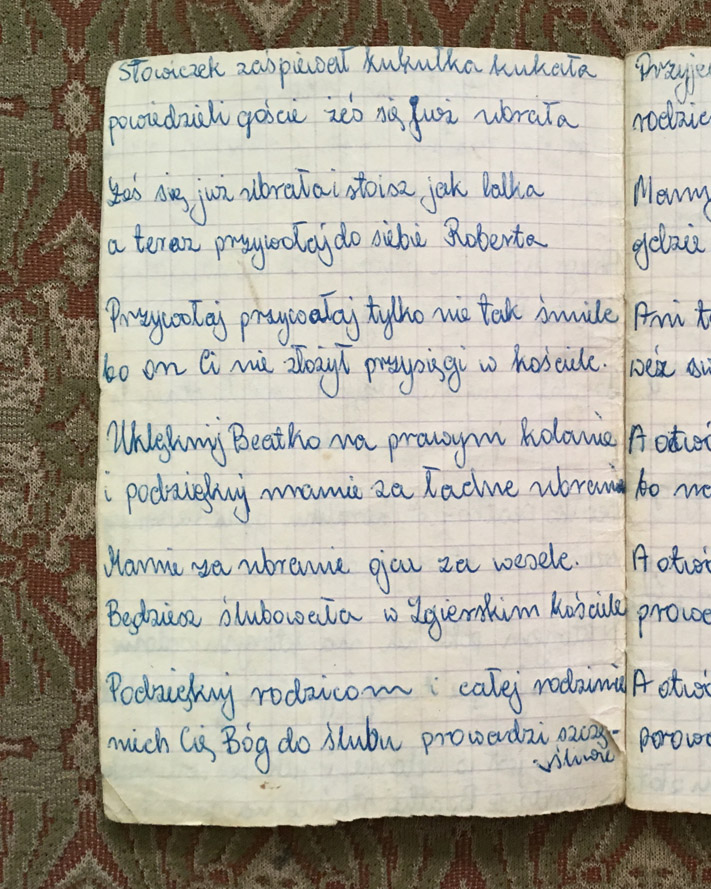 Słowiczek zaśpiewał kukułka kukała
powiedzieli goście żeś się już ubrała
Żeś się już ubrała i stoisz jak lalka
a teraz przywołaj do siebie Roberta
Przywołaj przywołaj tylko nie tak śmiele
bo on Ci nie złożył przysięgi w kościele.
Uklęknij Beatko na prawym kolanie
i podziękuj mamie za ładne ubranie
Mamie za ubranie ojcu za wesele.
Będziesz ślubowała w Zgierskim kościele
Podziękuj rodzicom i całej rodzinie
niech Cię Bóg do ślubu prowadzi szczę-
śliwie
Przyje
rodzic
Mamy
gdzie
Ani t
weź
A otwó
bo
A otwó
prowa
A otwó